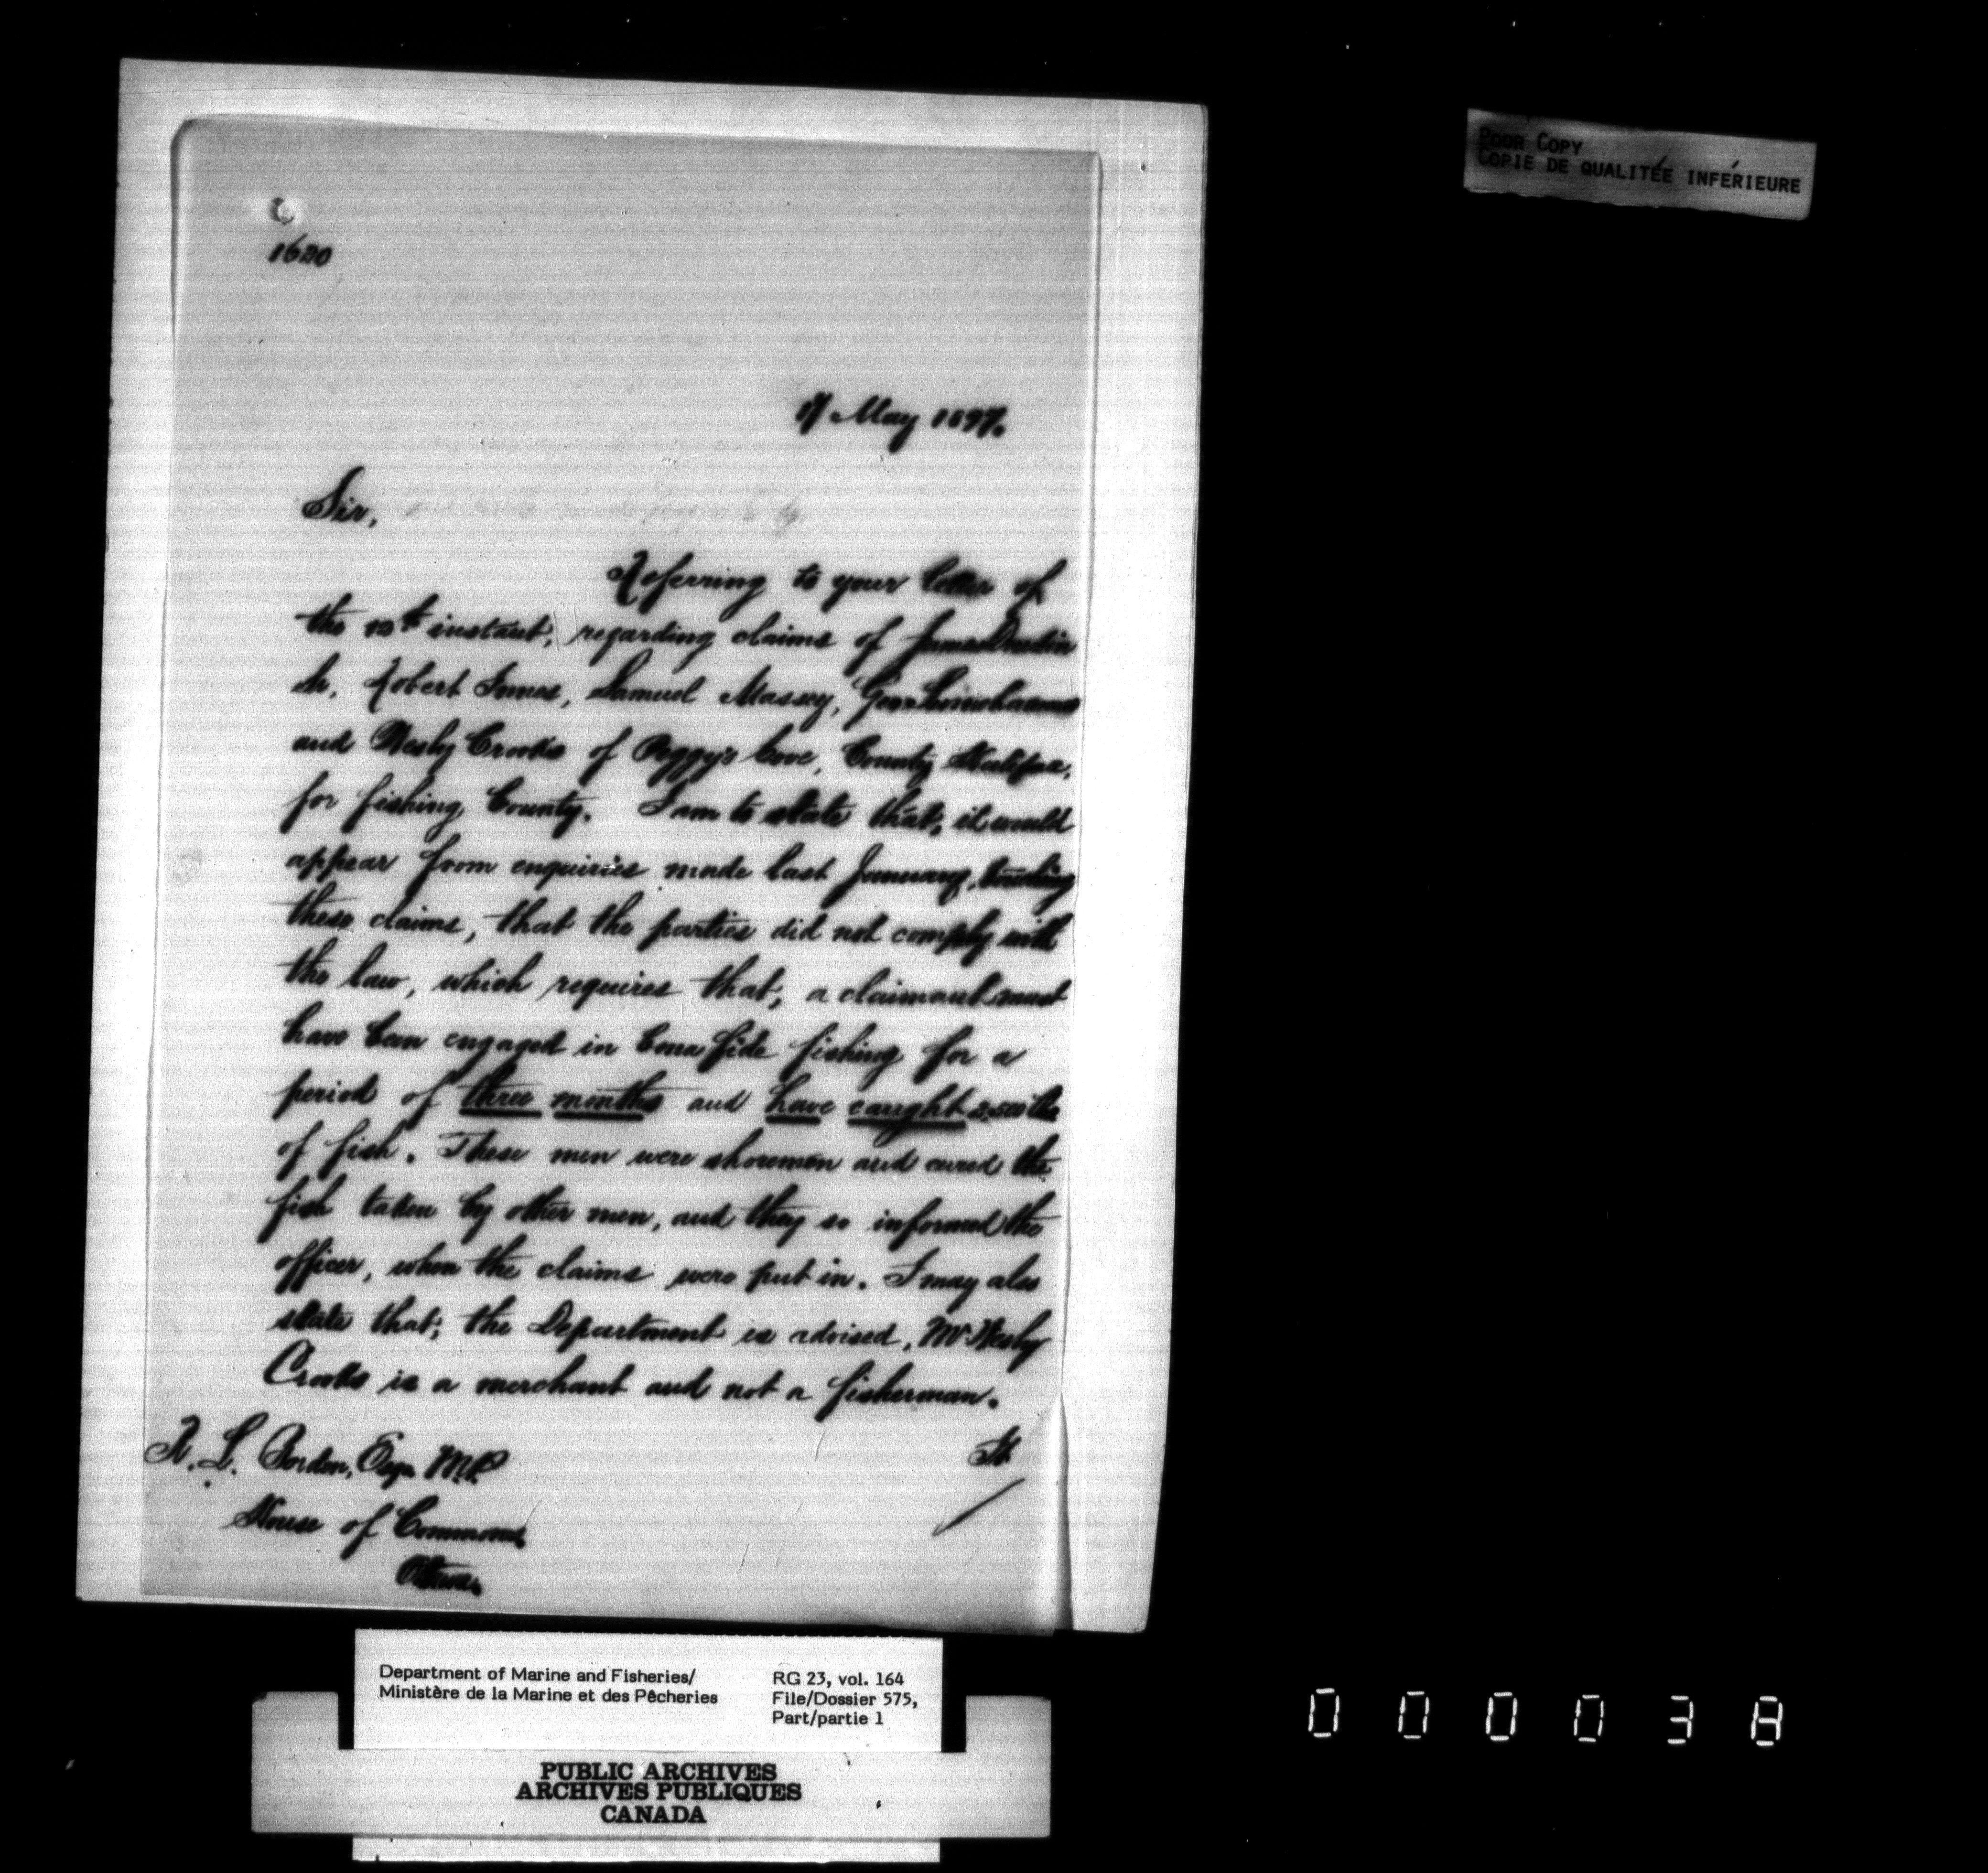 1620
17 May 1897.
Sir,
Referring to your letter of
the 10th instant, regarding claims of James
Sr. Robert Innes, Samuel Massey, Geo.
and Wesly Crooks of Peggy's Cove, County Halifax,
for fishing County. I am to state that, it would
appear from enquiries made last January, touching
these claims, that the parties did not comply with
the law, which requires that, a claimant must
have been engaged in bona fide fishing for a
period of three months and have caught 2,500 lbs
of fish. These men were shoremen and cured the
fish taken by other men, and they so informed the
officer, when the claims were put in. I may also
state that, the Department is advised, Mr Wesly
Crooks is a merchant and not a fisherman.
R. L. Borden, Esqr. M.P.
House of Commons,
Ottawa.
POOR COPY
COPIE DE QUALITÉE INFÉRIEURE
Department of Marine and Fisheries/
Ministère de la Marine et des Pêcheries
RG 23, vol. 164
File/Dossier 575,
Part/partie 1
PUBLIC ARCHIVES
ARCHIVES PUBLIQUES
CANADA
0 0 0 0 3 8